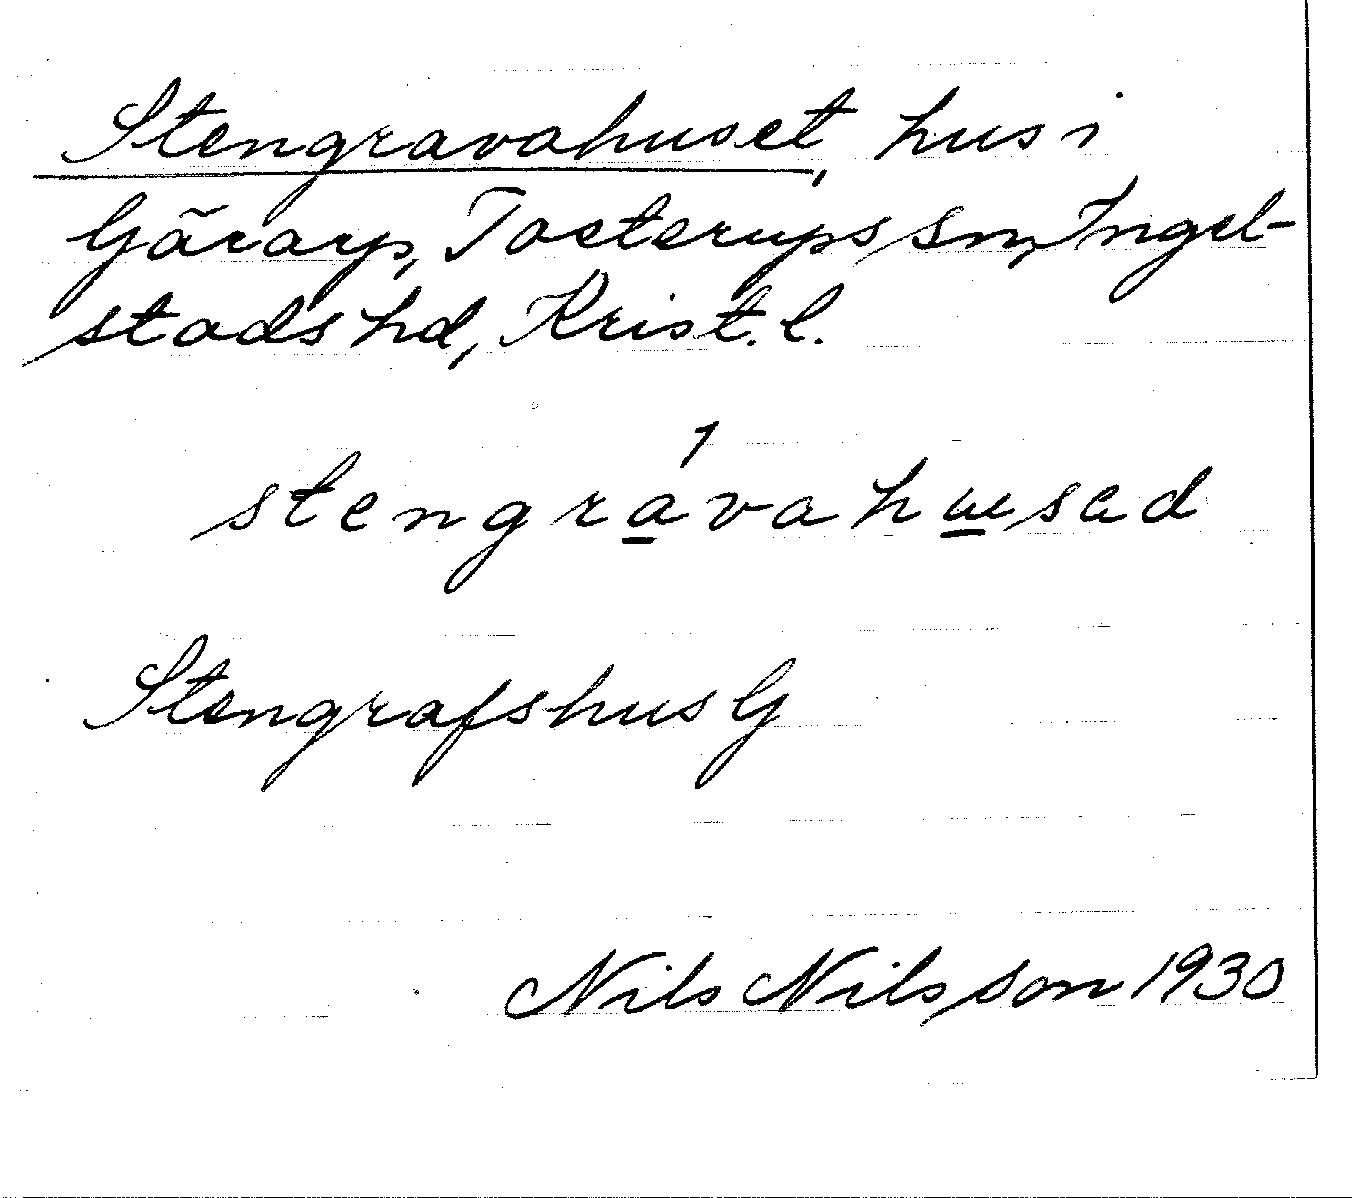 Stengravahuset, hus i
Gärarp, Tosterups sn, Ingel-
stads hd, Krist. l.
1
stengravahusad
Stengrafshus G
Nils Nilsson 1930